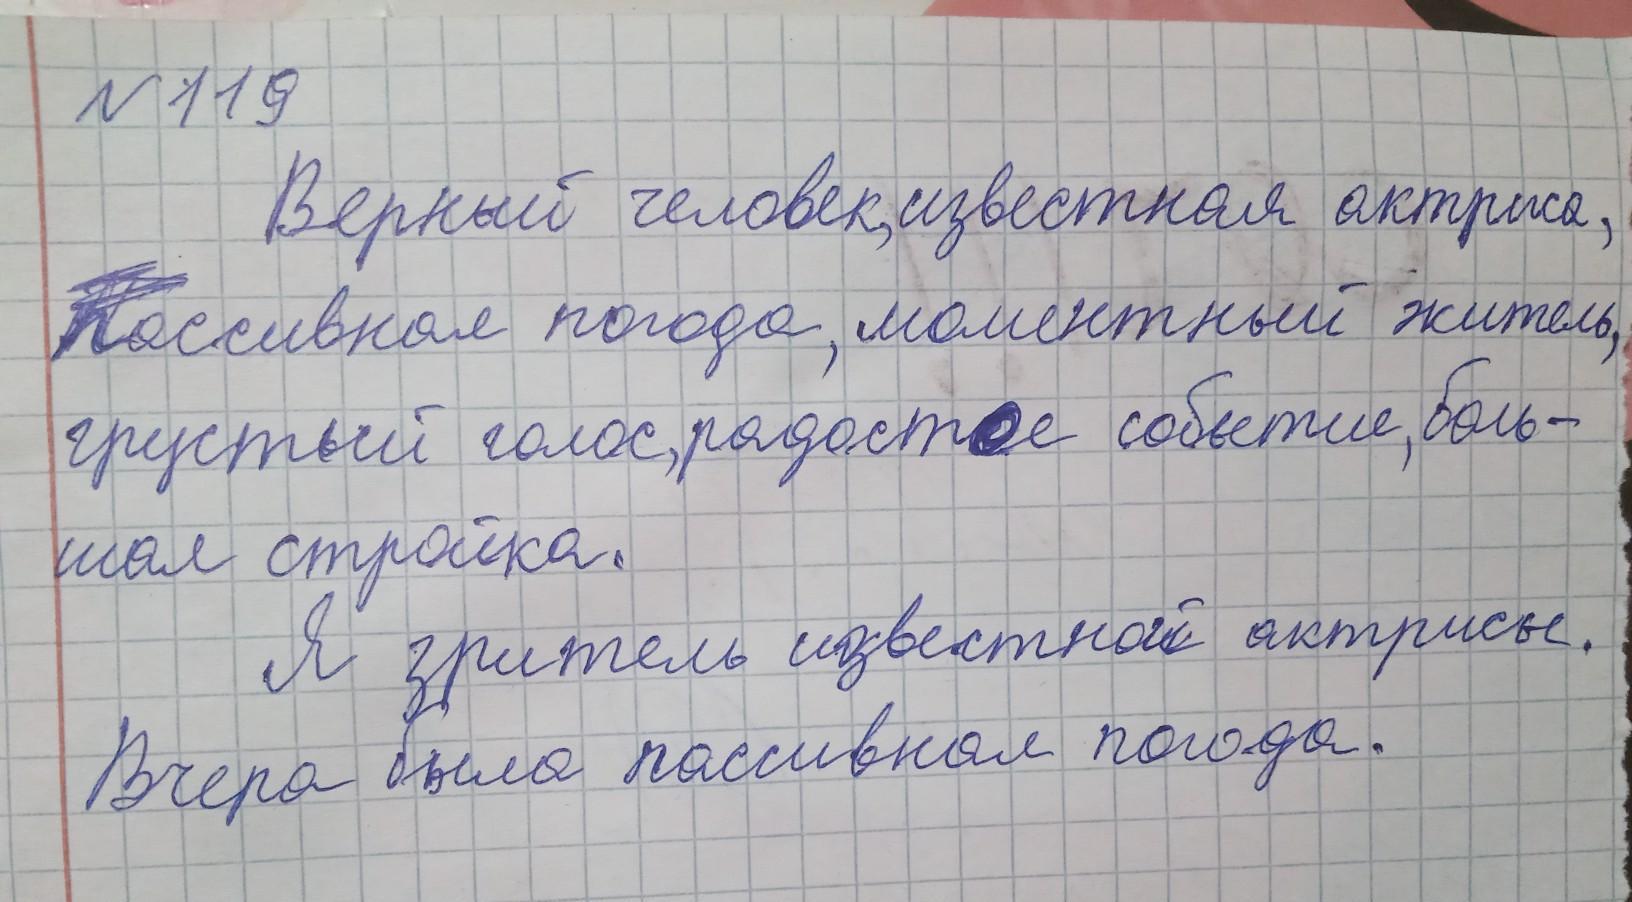 N 119
Верный человек, известная актриса,
Пассивная погода, моментный житель,
грустый голос, радостое событие, боль-
шая стройка.
Я зритель известной актрисы.
Вчера была пассивная погода.